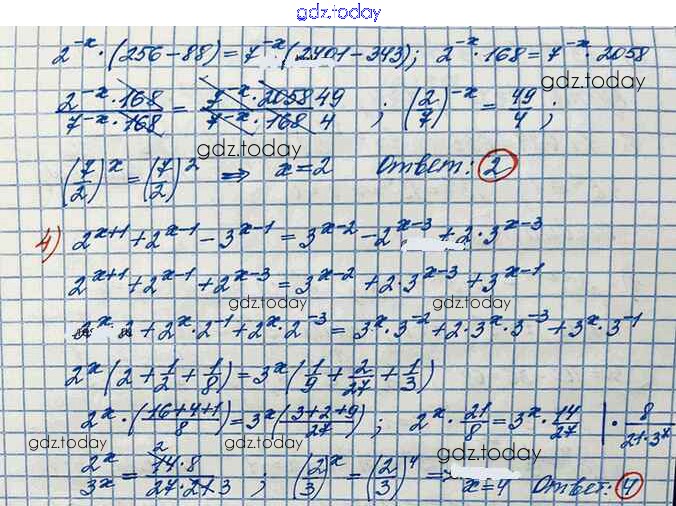 gdz.today
2^{-x}·(256-88)=7^{-x}(2401-343); 2^{-x}·168=7^{-x}·2058
gdz.today
\frac{2^{-x}·168}{7^{-x}·168}=\frac{7^{-x}·2058 49}{7^{-x}·168 4}; (\frac{2}{7})^{-x}=\frac{49}{4};
gdz.today
(\frac{7}{2})^{x}=(\frac{7}{2})^{2} ⇒ x=2 Ответ: 2
4) 2^{x+1}+2^{x-1}-3^{x-1}=3^{x-2}-2^{x-3}+2·3^{x-3}
2^{x+1}+2^{x-1}+2^{x-3}=3^{x-2}+2·3^{x-3}+3^{x-1}
gdz.today gdz.today
2^{x}·2+2^{x}·2^{-1}+2^{x}·2^{-3}=3^{x}·3^{-2}+2·3^{x}·3^{-3}+3^{x}·3^{-1}
2^{x}(2+\frac{1}{2}+\frac{1}{8})=3^{x}(\frac{1}{9}+\frac{2}{27}+\frac{1}{3})
2^{x}·(\frac{16+4+1}{8})=3^{x}(\frac{3+2+9}{27}); 2^{x}·\frac{21}{8}=3^{x}·\frac{14}{27} |·\frac{8}{21·3^{x}}
gdz.today gdz.today gdz.today
\frac{2^{x}}{3^{x}}=\frac{2 14·8}{27·21·3}; (\frac{2}{3})^{x}=(\frac{2}{3})^{4} ⇒ x=4 Ответ: 4